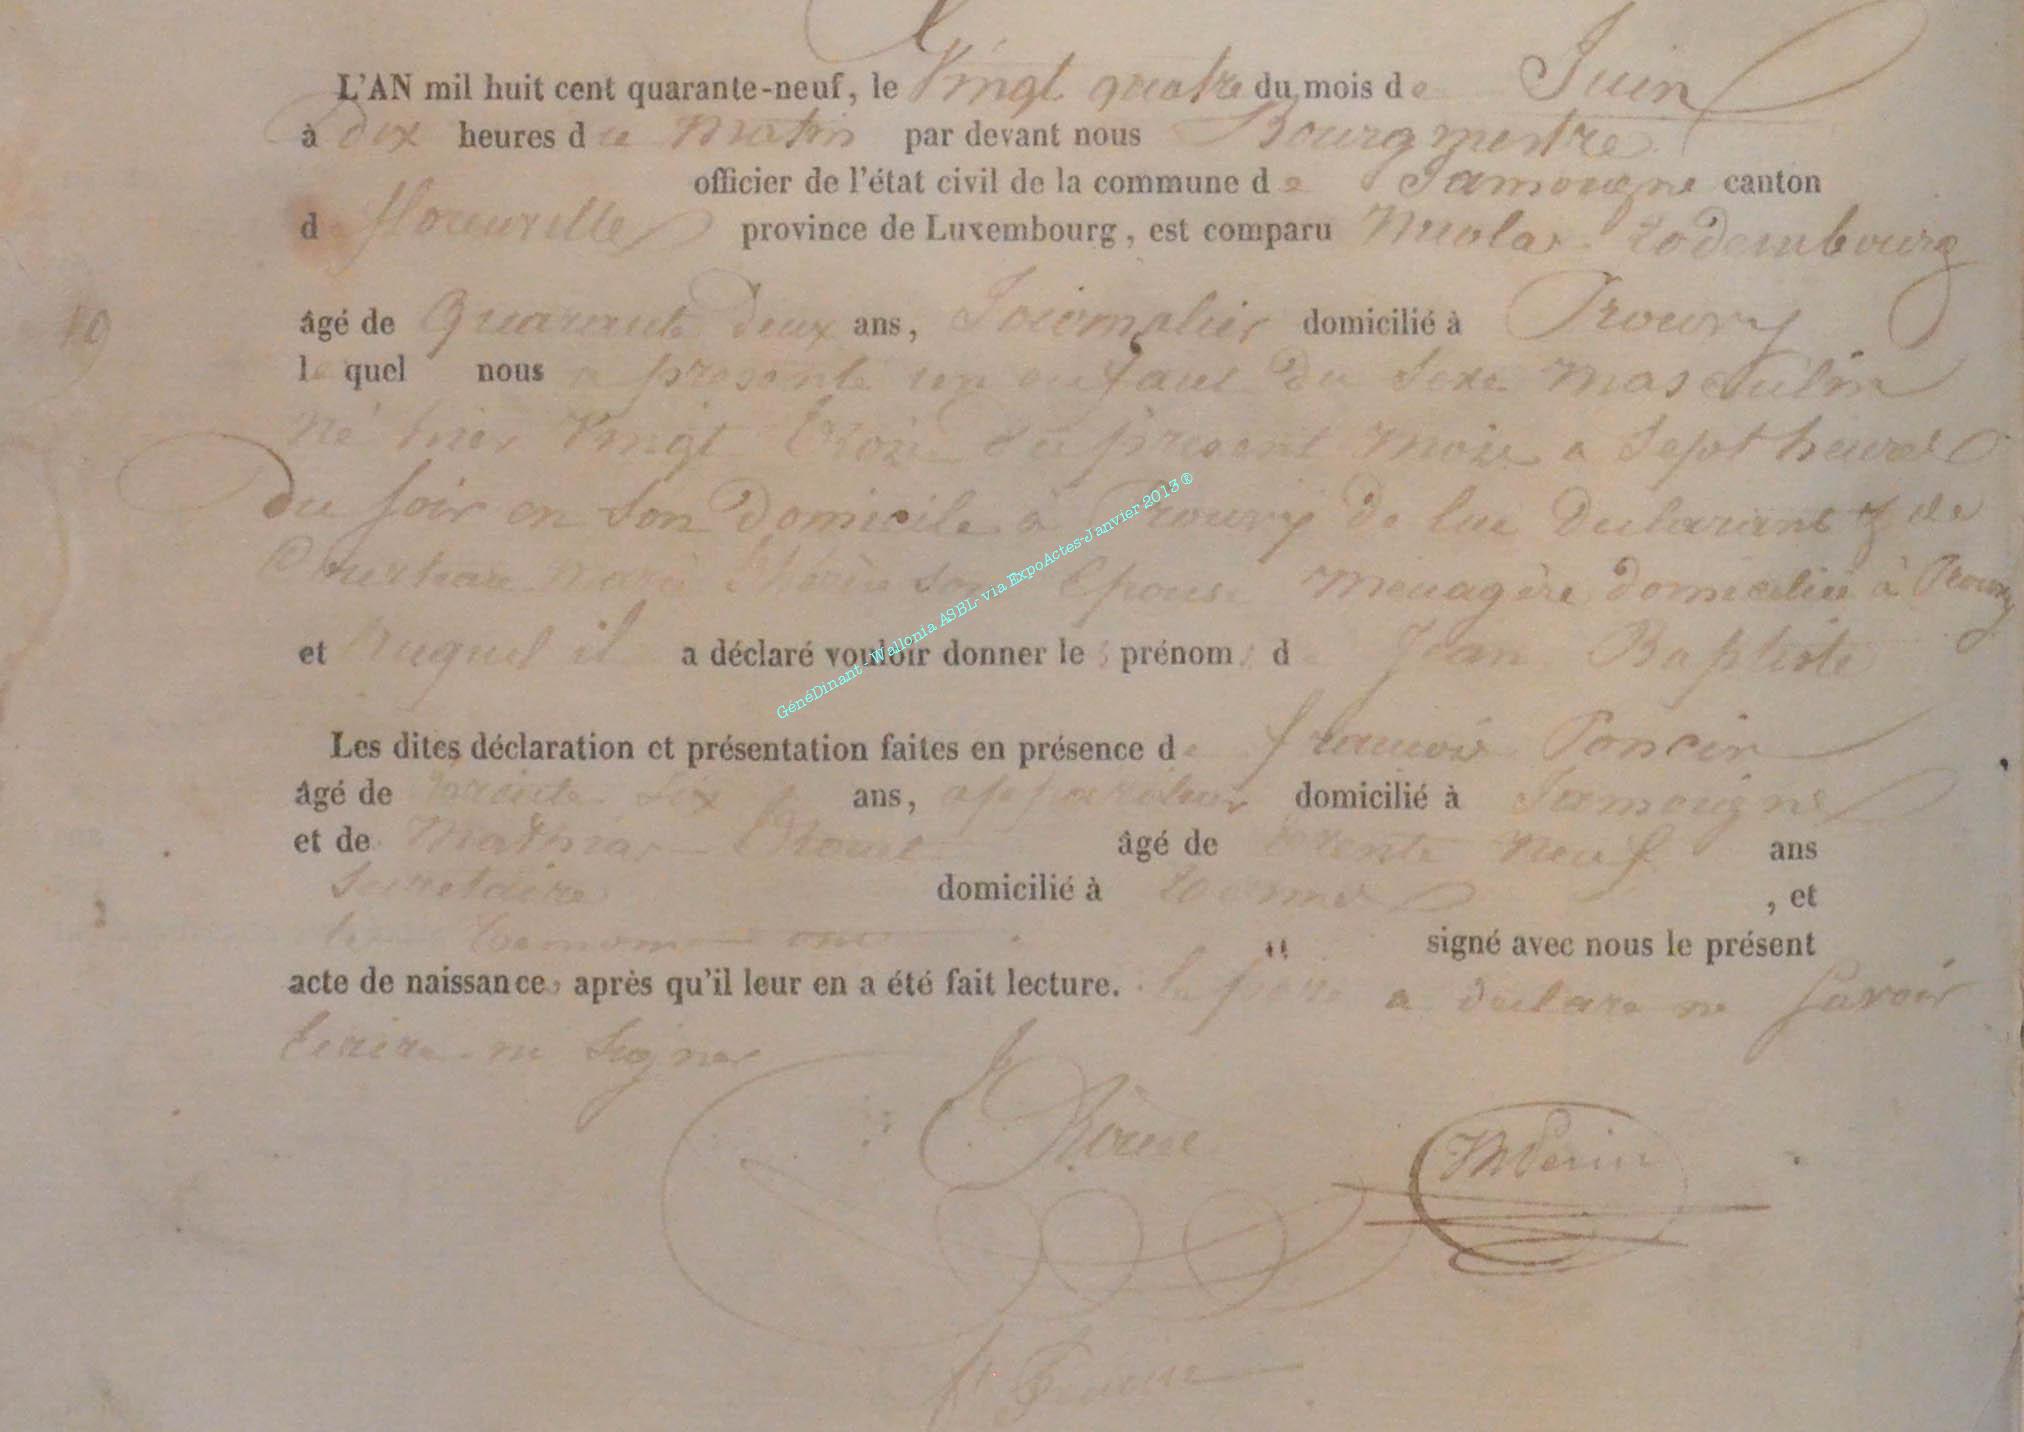 L'AN mil huit cent quarante-neuf, le Vingt quatre du mois de Juin
à dix heures du Matin par devant nous Bourgmestre
officier de l'état civil de la commune de Jamoigne canton
de florenville province de Luxembourg, est comparu Nicolas Rodembourg
âgé de Quarante deux ans, Journalier domicilié à Prouvy
19
lequel nous a présenté un enfant du Sexe masculin
né hier Vingt Trois du présent mois a Sept heures
du soir en son domicile à Prouvy de lui declarant & de
Marie son Epouse menagère domiciliée à Prouvy
et Auquel il a déclaré vouloir donner les prénoms de Jean Baptiste
Les dites déclaration et présentation faites en présence de francois Poncin
âgé de Trente six ans, domicilié à Jamoigne
et de Mathias âgé de trente neuf ans
Secretaire domicilié à , et
les temoins ont signé avec nous le présent
acte de naissance, après qu'il leur en a été fait lecture. le père a declare ne Savoir
Ecrire ni Signer
GénéDinant - Wallonia ASBL- via ExpoActes-Janvier 2013®